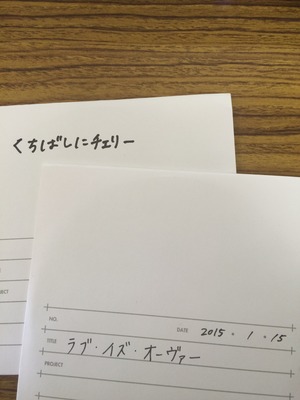 くちばしにチェリー
NO.
DATE 2015・1・15
TITLE ラブ・イズ・オーヴァー
PROJECT